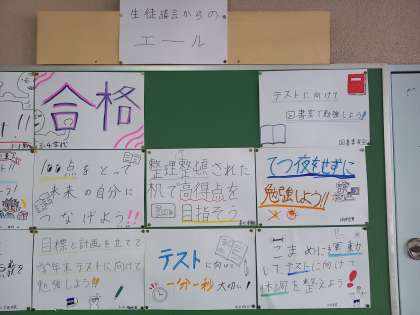 生徒議会からの
エール
合格
テストに向けて
図書室で勉強しよう!
図書委員会
100点をとって
未来の自分に
つなげよう!!
整理整頓された
机で高得点を
目指そう
てつ夜をせずに
勉強しよう!!
目標と計画を立てて
学年末テストに向けて
勉強しよう!!
テストに向け
一分一秒大切に!
こまめに運動
してテストに向けて
体調を整えよう!